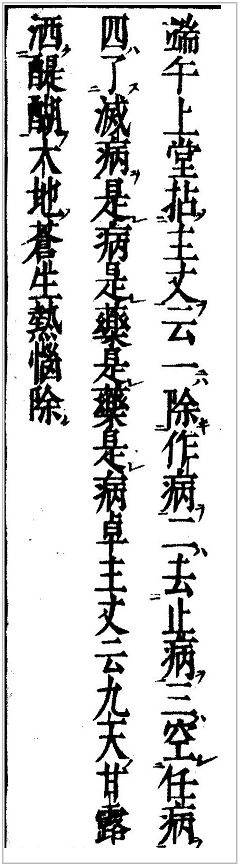 端午上堂拈主丈云一除作病二去止病三空任病
四了滅病是病是藥是藥是病卓主丈云九天甘露
洒醍醐大地蒼生熱惱除